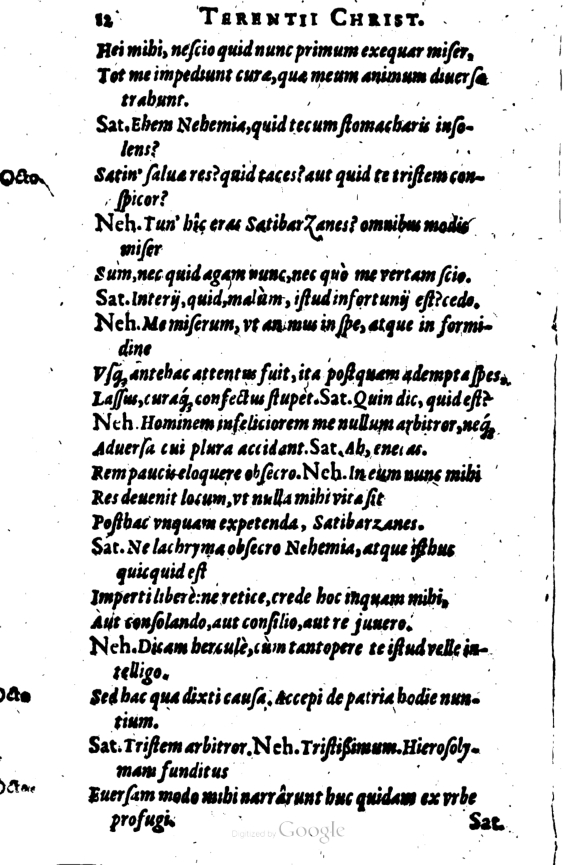 12 TERENTII CHRIST.
Hei mihi, nescio quid nunc primum exequar miser,
Tot me impediunt curæ, quæ meum animum diuersæ
trahunt.
Sat. Ehem Nehemia, quid tecum stomacharis inso-
lens?
Octo. Satin' saluæ res? quid taces? aut quid te tristem con-
spicor?
Neh. Tun' hîc eras Satibarzanes? omnibus modis
miser
Sum, nec quid agam nunc, nec quò me vertam scio.
Sat. Interij, quid, malùm, istud infortunij est? cedo.
Neh. Me miserum, vt animus in spe, atque in formi-
dine
Vsq; antehac attentus fuit, ita postquam adempta spes,
Lassus, curaq; confectus stupet. Sat. Quin dic, quid est?
Neh. Hominem infeliciorem me nullum arbitror, neq;
Aduersa cui plura accidant. Sat. Ah, enecas.
Rem paucis eloquere obsecro. Neh. In eum nunc mihi
Res deuenit locum, vt nulla mihi vita sit
Posthac vnquam expetenda, Satibarzanes.
Sat. Ne lachryma obsecro Nehemia, atque isthuc
quicquid est
Imperti liberè: ne retice, crede hoc inquam mihi,
Aut consolando, aut consilio, aut re juuero.
Neh. Dicam herculè, cùm tantopere te istud velle in-
telligo.
Octo Sed hac qua dixti causa. Accepi de patria hodie nun-
tium.
Sat. Tristem arbitror. Neh. Tristißimum. Hierosoly-
mam funditus
Octo Euersam modo mihi narrârunt huc quidam ex vrbe
profugi.
Sat.
Digitized by Google